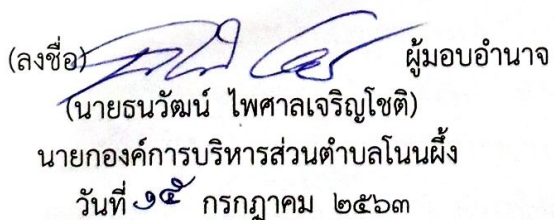 (ลงชื่อ) ผู้มอบอำนาจ
(นายธนวัฒน์ ไพศาลเจริญโชติ)
นายกองค์การบริหารส่วนตำบลโนนผึ้ง
วันที่ ๑๕ กรกฎาคม ๒๕๖๓